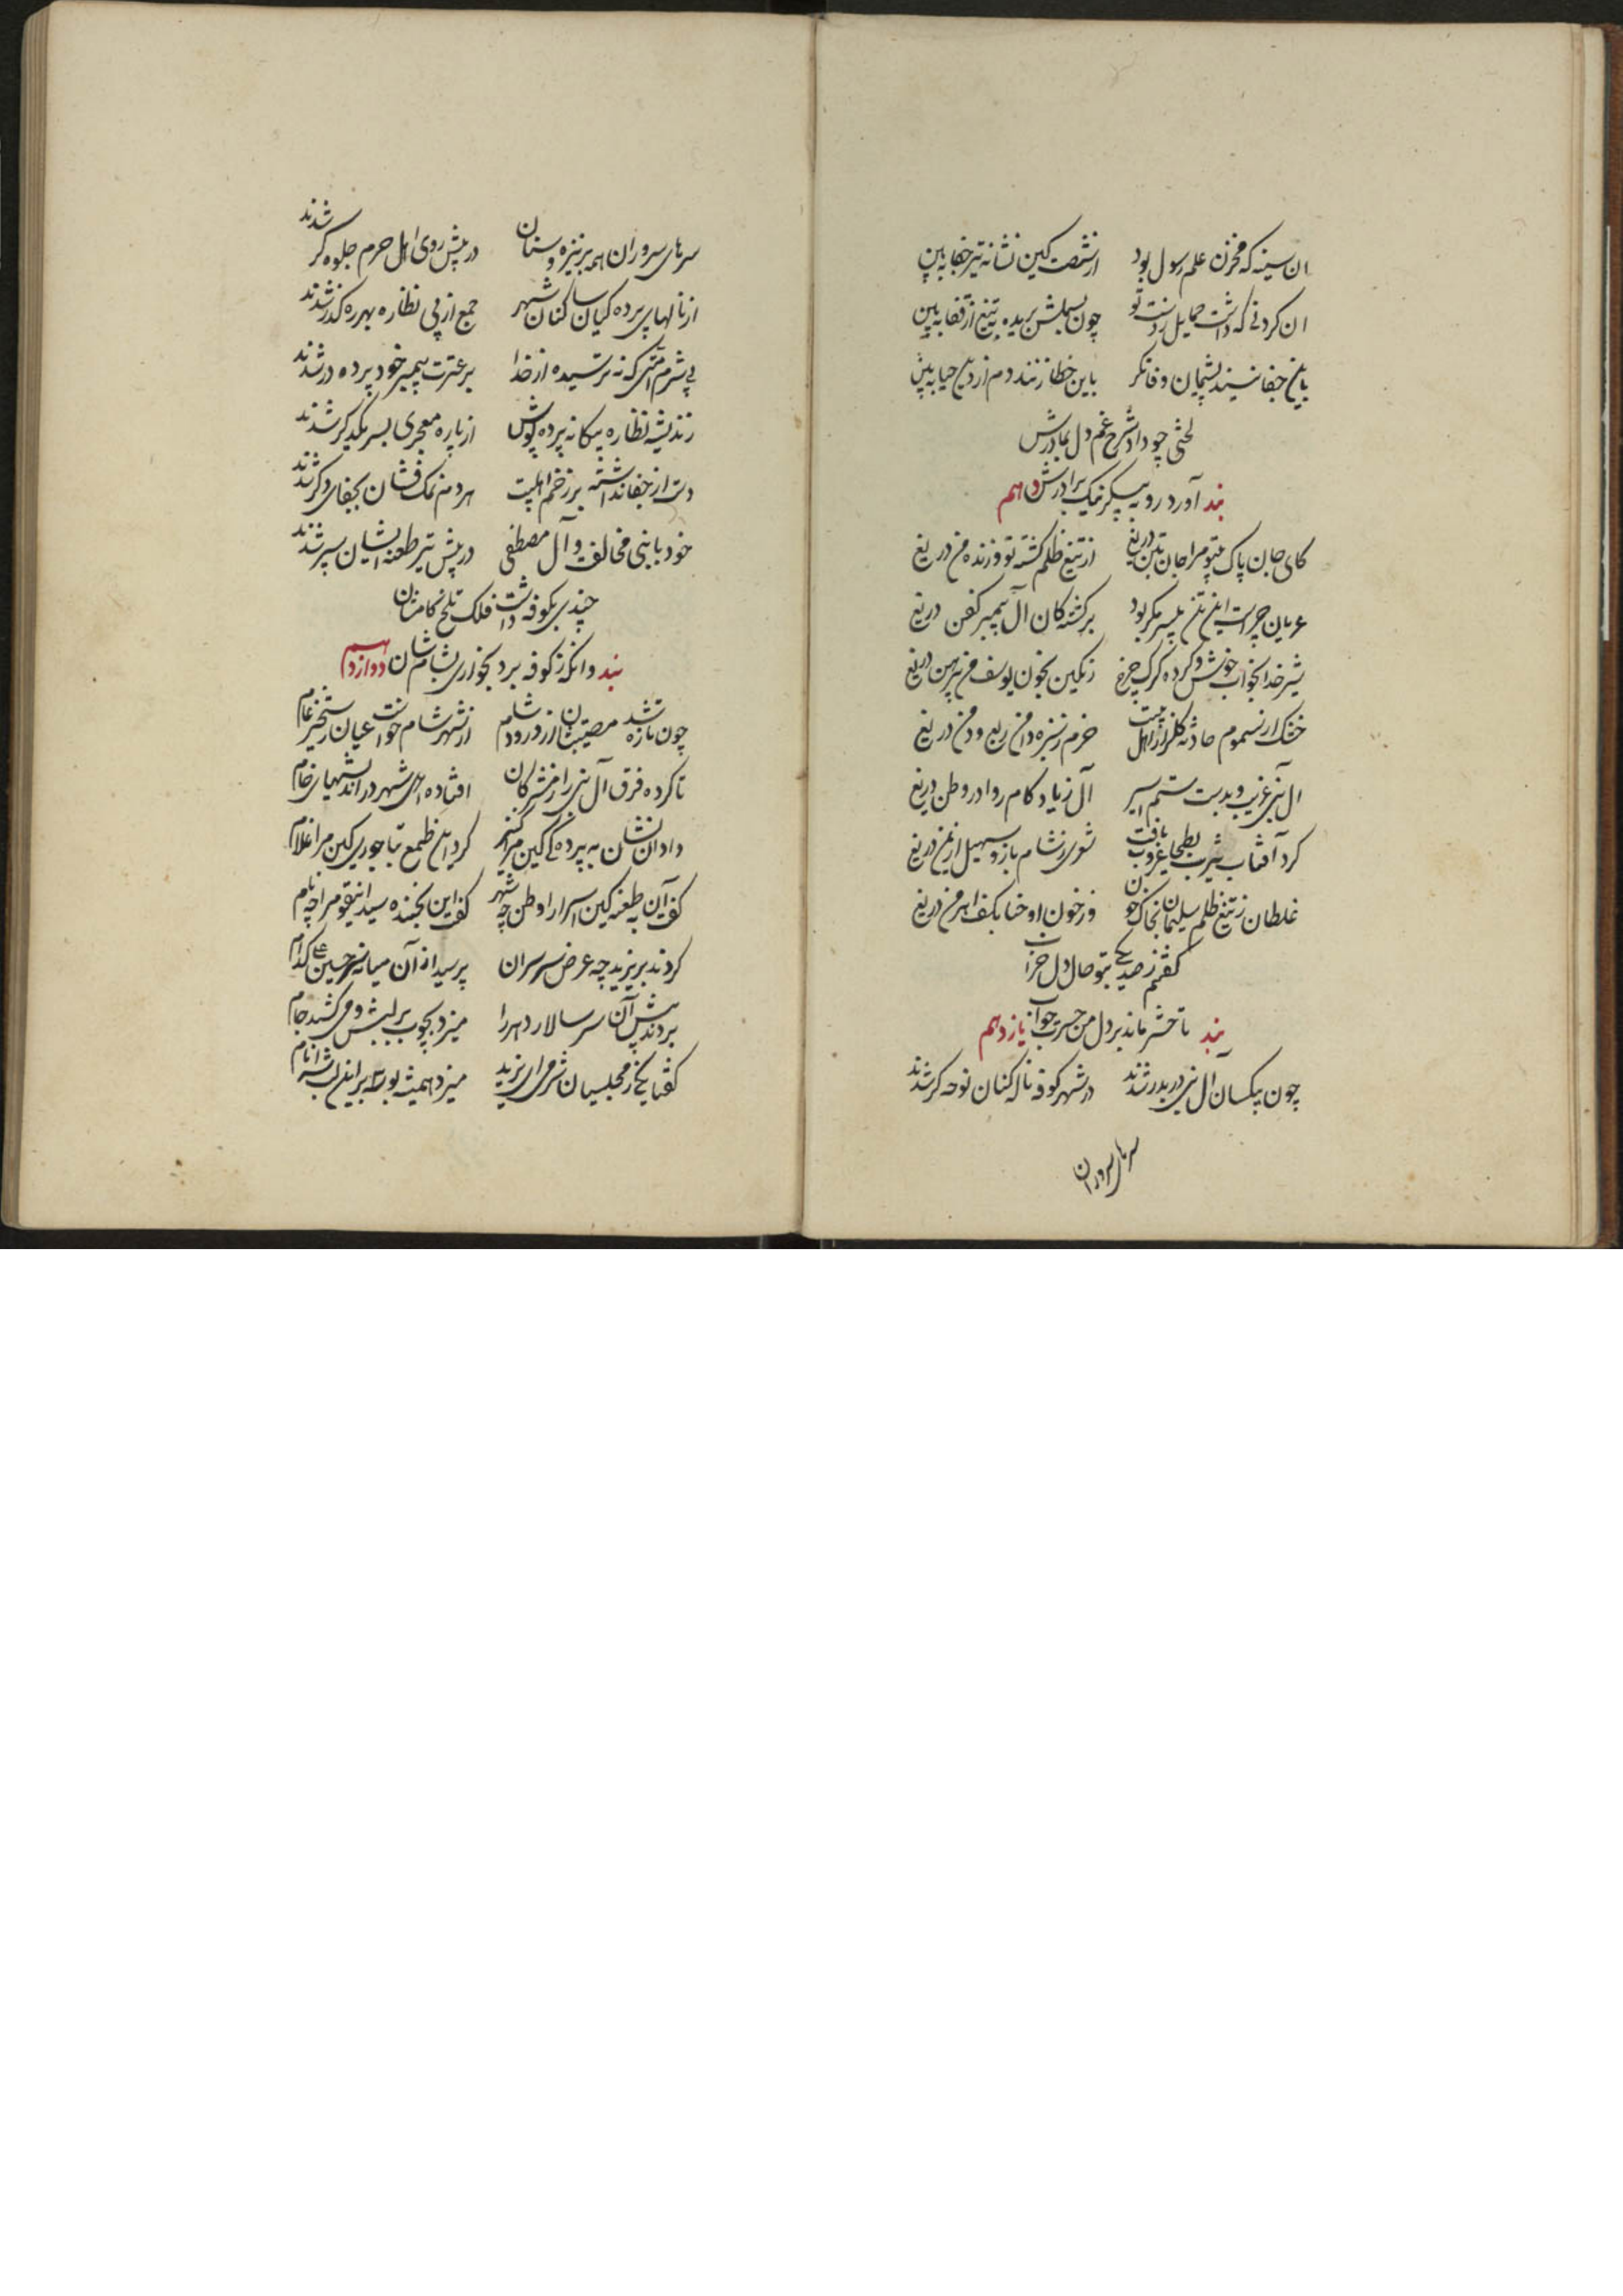 ان سینه که مخزن علم رسول بود از شصت کین نشانه تیر جفا ببین
ان کردنی که داشت حمایل دو دست تو چون بسملش بریده به تیغ از قفا ببین
با این جفا نیند پشیمان وفا نکر با این خطا زنند دم از دین حیا ببین
لختی چو داد شرح غم دل بمادرش
بند آورد رو به پیکر پاک برادرش دهم
کای جان پاک بیتو مرا جان بتن دریغ از تیغ ظلم کشته تو و زنده من دریغ
عریان چراست این تن بی سر مکر بود بر کشتکان آل پیمبر کفن دریغ
شیر خدا بخواب خوش و کرده کرک چرخ رنکین بخون یوسف من پیرهن دریغ
خشک از سموم حادثه کلزار اهل بیت خرم ز سبزه دامن ربع و دمن دریغ
ال نبی غریب و بدست ستم اسیر آل زیاد کامروا در وطن دریغ
کرد آفتاب یثرب و بطحا غروب یافت شعری ز شام باز و سهیل از یمن دریغ
غلطان ز تیغ ظلم سلیمان بخاک و خون وز خون او حنا بکف اهرمن دریغ
کفتم ز صد یکی بتو حال دل خراب
بند تا حشر ماند بر دل من حسرت جواب یازدهم
چون بیکسان آل نبی دربدر شدند در شهر کوفه ناله کنان نوحه کر شدند
سرهای سروران
سرهای سروران همه بر نیزه و سنان در پیش روی اهل حرم جلوه کر شدند
از نالهای پرده کیان ساکنان شهر جمع از پی نظاره بهر رهکذر شدند
بی شرم امتی که نترسیده از خدا بر عترت پیمبر خود پرده در شدند
ز اندیشه نظاره بیکانه پرده پوش از پاره معجری بسر یکدکر شدند
دست از جفا نداشته بر زخم اهلبیت هر دم نمک فشان بجفای دکر شدند
خود بانی مخالف و آل مصطفی در پیش تیر طعنه ایشان سپر شدند
چندی بکوفه داشت فلک تلخ کامشان
بند وانکه ز کوفه برد بخواری بشامشان دوازدهم
چون تازه شد مصیبتشان از ورود شام از شهر شام خواست عیان رستخیز عام
تا کرده فرق آل نبی را ز مشرکان افتاده اهل شهر در اندیشهای خام
داد آن نشان به پرده کی کین مرا کنیز کرد این طمع بتاجوری کین مرا غلام
کفت آن به طعنه کین اسرا را وطن چه شهر کفت این بخنده سید اینقوم را چه نام
کردند بر یزید چه عرض سر سران پرسید از آن میانه سر حسین علی کدام
بردند پیش آن سر سالار دهر را میزد بچوب بر لبش و می کشید جام
کفتا یکی ز مجلسیان شرمی ای یزید میزد همیشه بوسه بر این لب شه انام